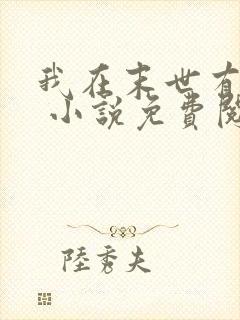 我在末世有
小説免費閱
陸秀夫